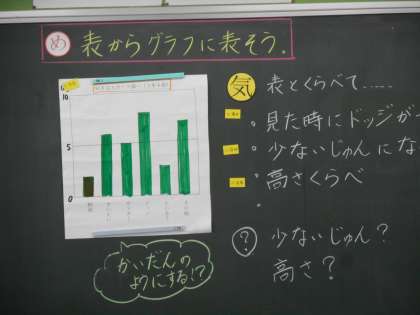 め 表からグラフに表そう。
10
5
0
かいだんの
ようにする!?
気 表とくらべて.....
・見た時にドッジが
・少ないじゅんにな
・高さくらべ
・
? 少ないじゅん?
高さ?